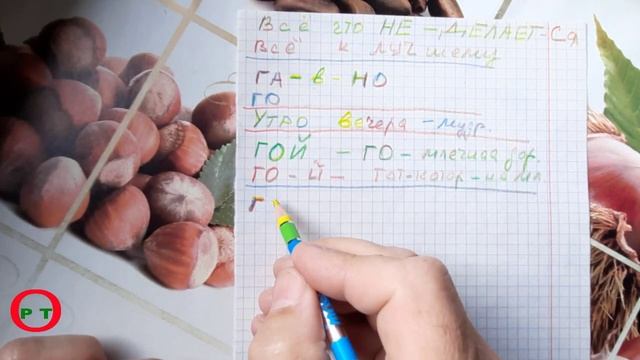 Всё что НЕ - ДЕЛАЕТ-Ся
Всё к лучшему
ГА - в - НО
ГО
Утро вечера - мудр.
ГОЙ - ГО - млечная
ГО - Й -
Г
РТ